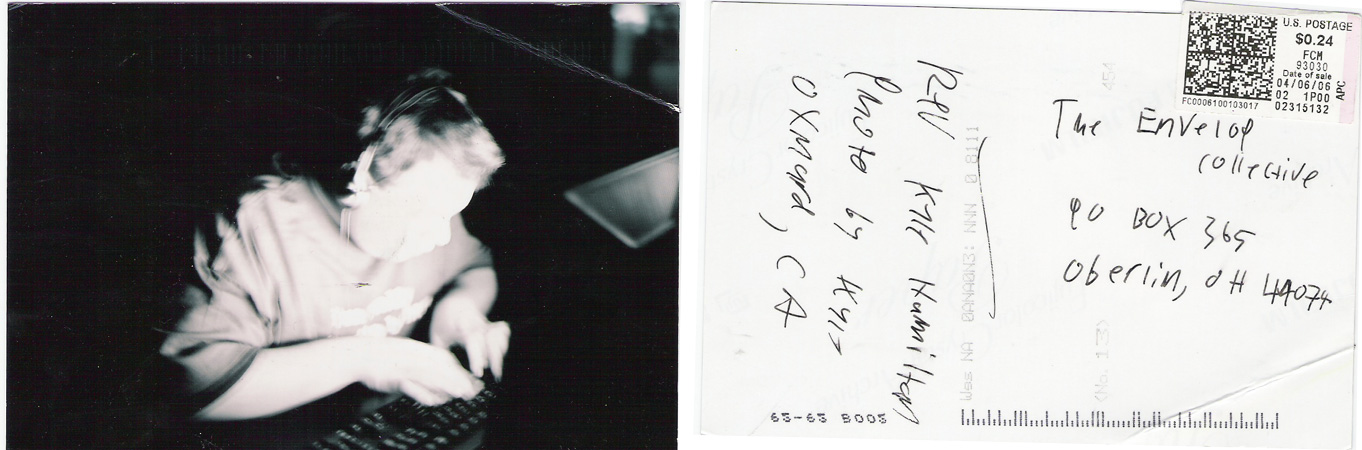 U.S. POSTAGE
$0.24
FCM
93030
Date of sale
04/06/06
02 1P00
02315132
APC
FC0006100103017
The Envelop
collective
PO BOX 365
Oberlin, OH 44074
Rev Kyle Hamilton
Photo by Kyle
Oxnard, CA
454
Was NA 0ANA0N3: NNN 0.8111
<No. 13>